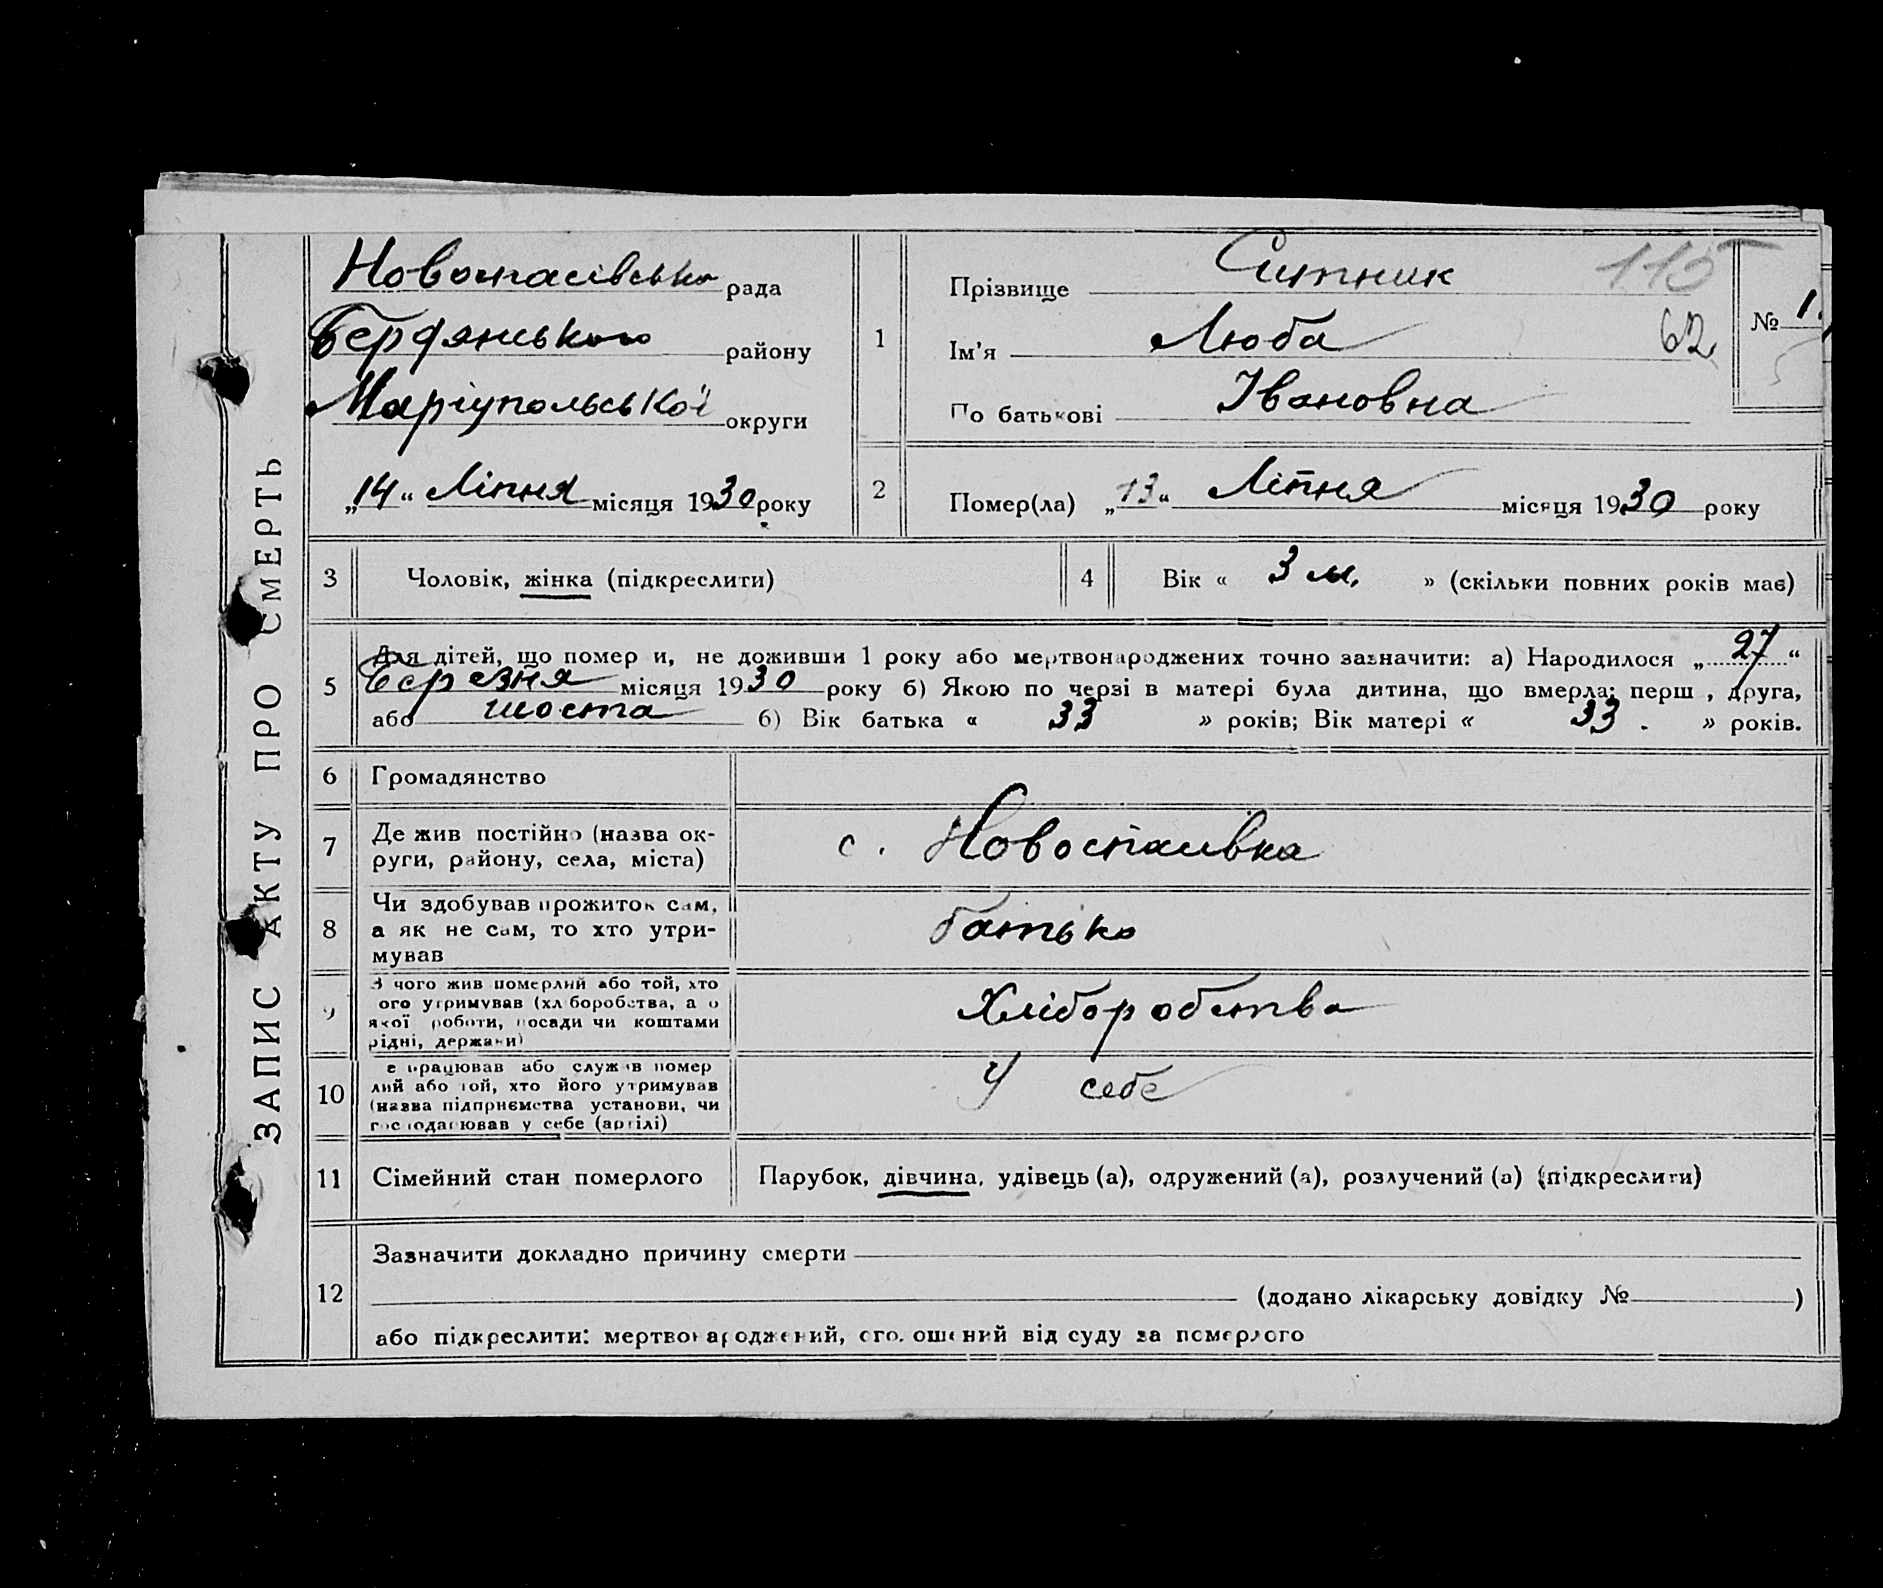 ЗАПИС АКТУ ПРО СМЕРТЬ
Новоспасівська рада
Бердянського району
Маріупольської округи
„14“ Ліпня місяця 1930 року
1
Прізвище Ситник
115
Ім'я Люба
62
По батькові Івановна
№ 1
2
Помер(ла) „13“ Ліпня місяця 1930 року
3
Чоловік, жінка (підкреслити)
4
Вік « 3 м. » (скільки повних років має)
5
Для дітей, що помер и, не доживши 1 року або мертвонароджених точно зазначити: а) Народилося „27“
Березня місяця 1930 року б) Якою по черзі в матері була дитина, що вмерла: перш , друга,
або шоста б) Вік батька « 33 » років; Вік матері « 33 . » років.
6
Громадянство
7
Де жив постійно (назва ок-
руги, району, села, міста)
с. Новоспасівка
8
Чи здобував прожиток сам,
а як не сам, то хто утри-
мував
батько
9
З чого жив померлий або той, хто
ого утримував (хл боробства, а о
якої роботи, посади чи коштами
рідні, держави)
Хліборобства
10
е працював або служив померлий
лий або той, хто його утримував
(назва підприємства установи, чи
господарював у себе (артілі)
У себе
11
Сімейний стан померлого
Парубок, дівчина, удівець (а), одружений (а), розлучений (а) (підкреслити)
12
Зазначити докладно причину смерти
(додано лікарську довідку № )
або підкреслити: мертвонароджений, оголошений від суду за померлого